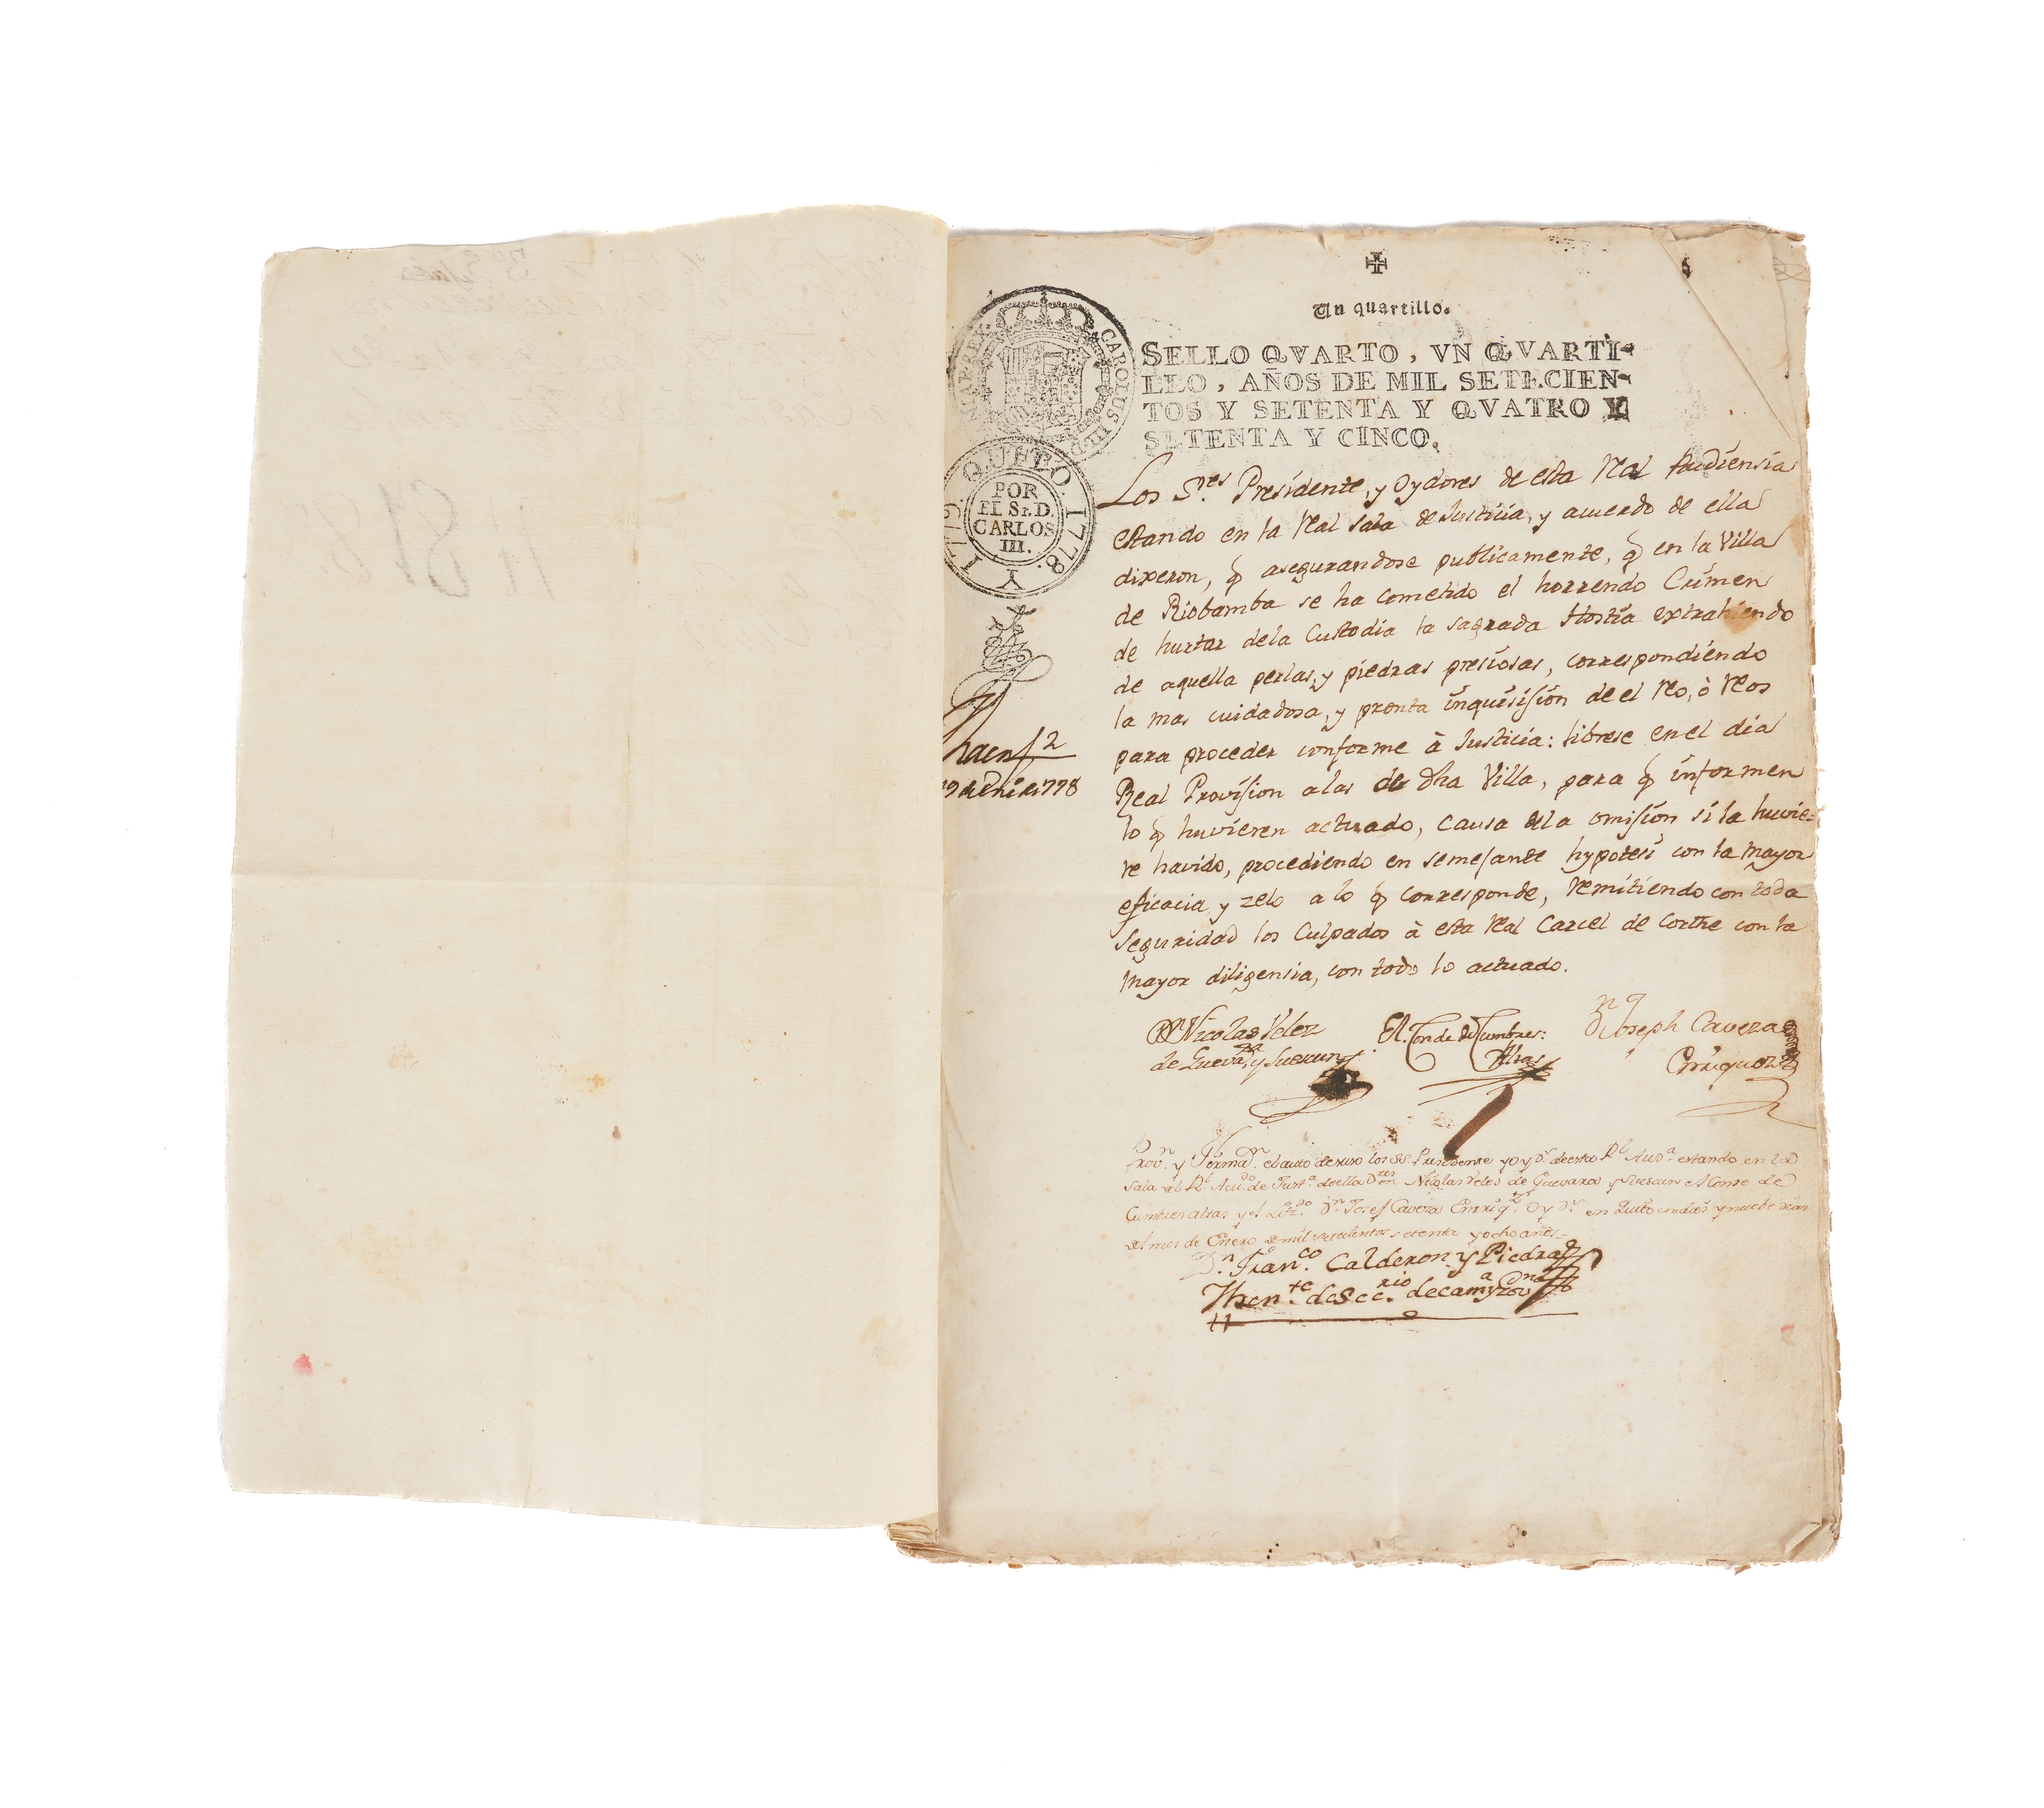 Un quartillo.
SELLO QVARTO, VN QVARTI-
LLO, AÑOS DE MIL SETECIEN-
TOS Y SETENTA Y QVATRO Y
SETENTA Y CINCO.
CAROLUS III. D. HISPANIAR. REX.
QUITO. 1778. Y 1779.
POR
EL Sr. D.
CARLOS
III.
Los S.res Presidente, y Oydores de esta Real Audiensia
estando en la Real Sala de Justicia, y acuerdo de ella
dixeron, q̃ asegurandose publicamente, q̃ en la Villa
de Riobamba se ha cometido el horrendo Crimen
de hurtar dela Custodia la sagrada Hostia extrahiendo
de aquella perlas, y piedras presiosas, correspondiendo
la mas cuidadosa, y pronta inquisision de el Reo, ò Reos
para proceder conforme à Justicia: librese en el dia
Real Provision a las de dha Villa, para q̃ informen
lo q̃ huvieren actuado, causa dela omision si la huvie=
re havido, procediendo en semejante hypotesi con la mayor
eficacia, y zelo a lo q̃ corresponde, remitiendo con toda
seguridad los Culpados à esta Real Carcel de Corthe con la
mayor diligensia, con todo lo actuado.
2
19 de En.º de 1778
Nicolas Velez
de Guev.ra y Suescun
El Conde de Cumbres
Altas
D.n Joseph Caveza
Enriquez
Prov.n y Firma.n el auto de suso los SS. Presidente y oyd.s de esta R.l Aud.a estando en la
Sala del R.l Acu.do de Just.a de ella D.res D.n Nicolas Veles de Guevara y Suescun el Conde de
Cumbres altas y el Liz.do D.n Josef Caveza Enriq.z Oyd.s en Quito en dies y nuebe dias
del mes de Enero de mil setecientos setenta y ocho años
D.n Fran.co Calderon y Piedra
Then.te de Sec.rio de cam.a y Gov.n